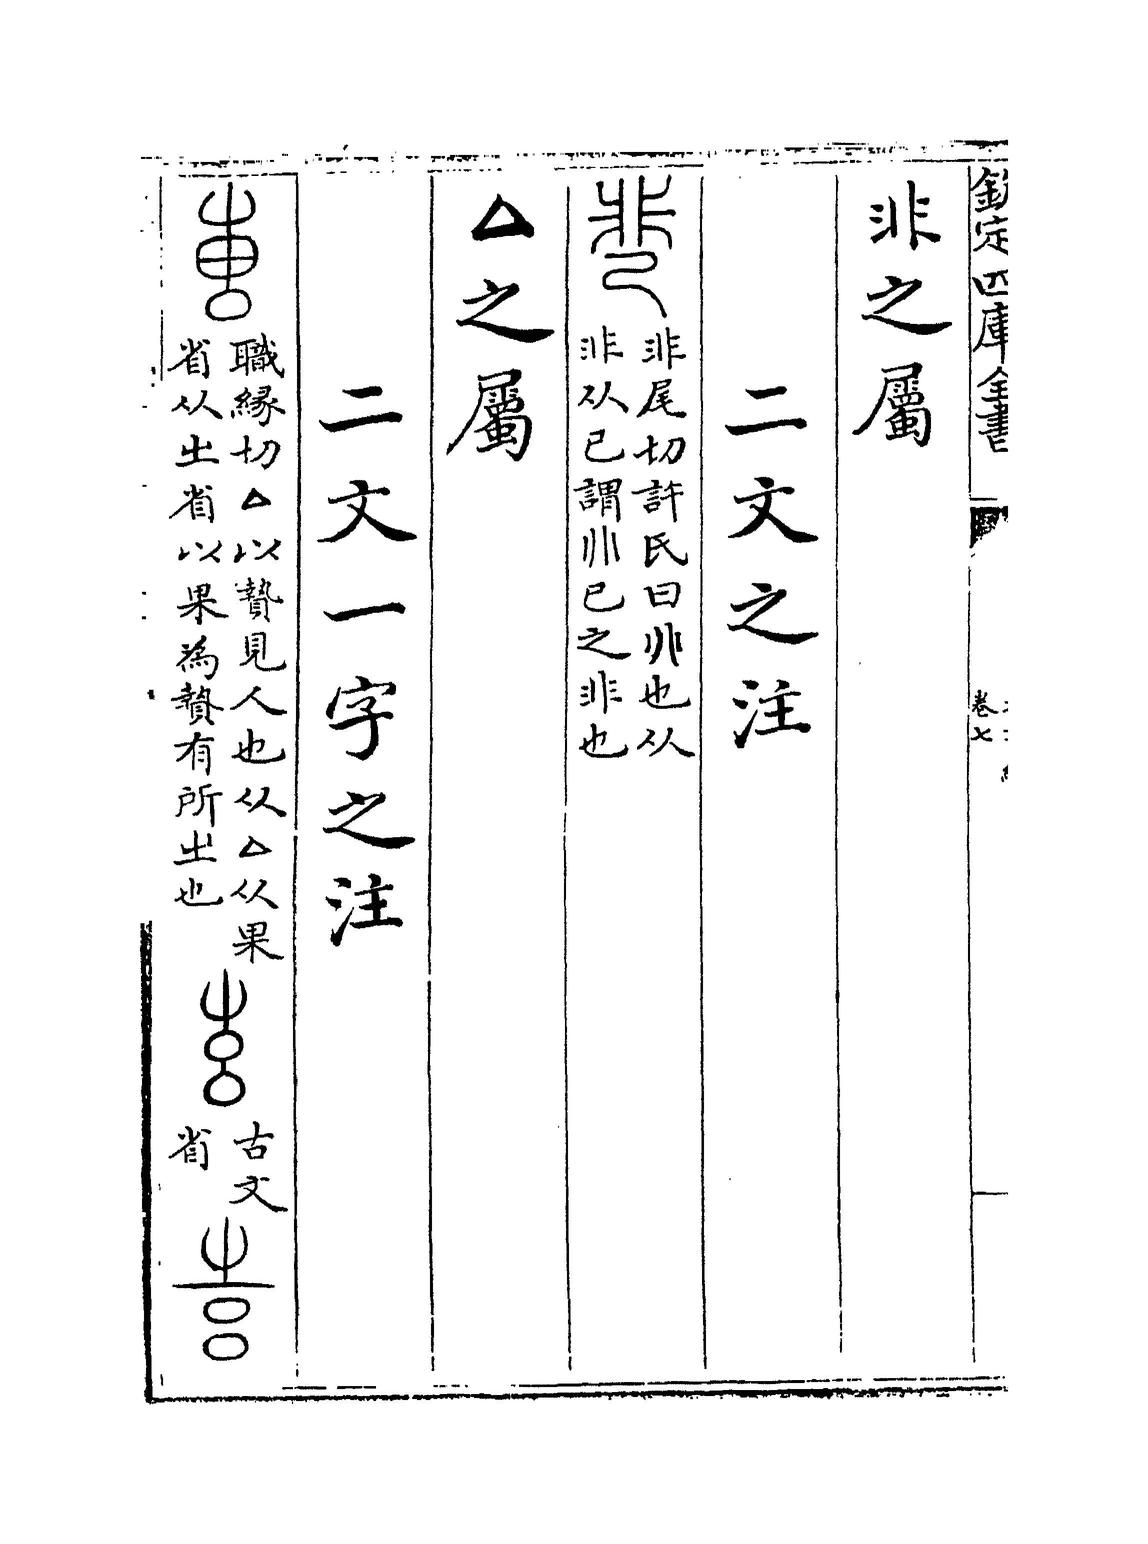 欽定四庫全書
卷七
非之屬
二文之注
非尾切許氏曰非也从
非从已謂非已之非也
△之屬
二文一字之注
職緣切△以贄見人也从△从果
省从出省以果為贄有所出也
古文
省